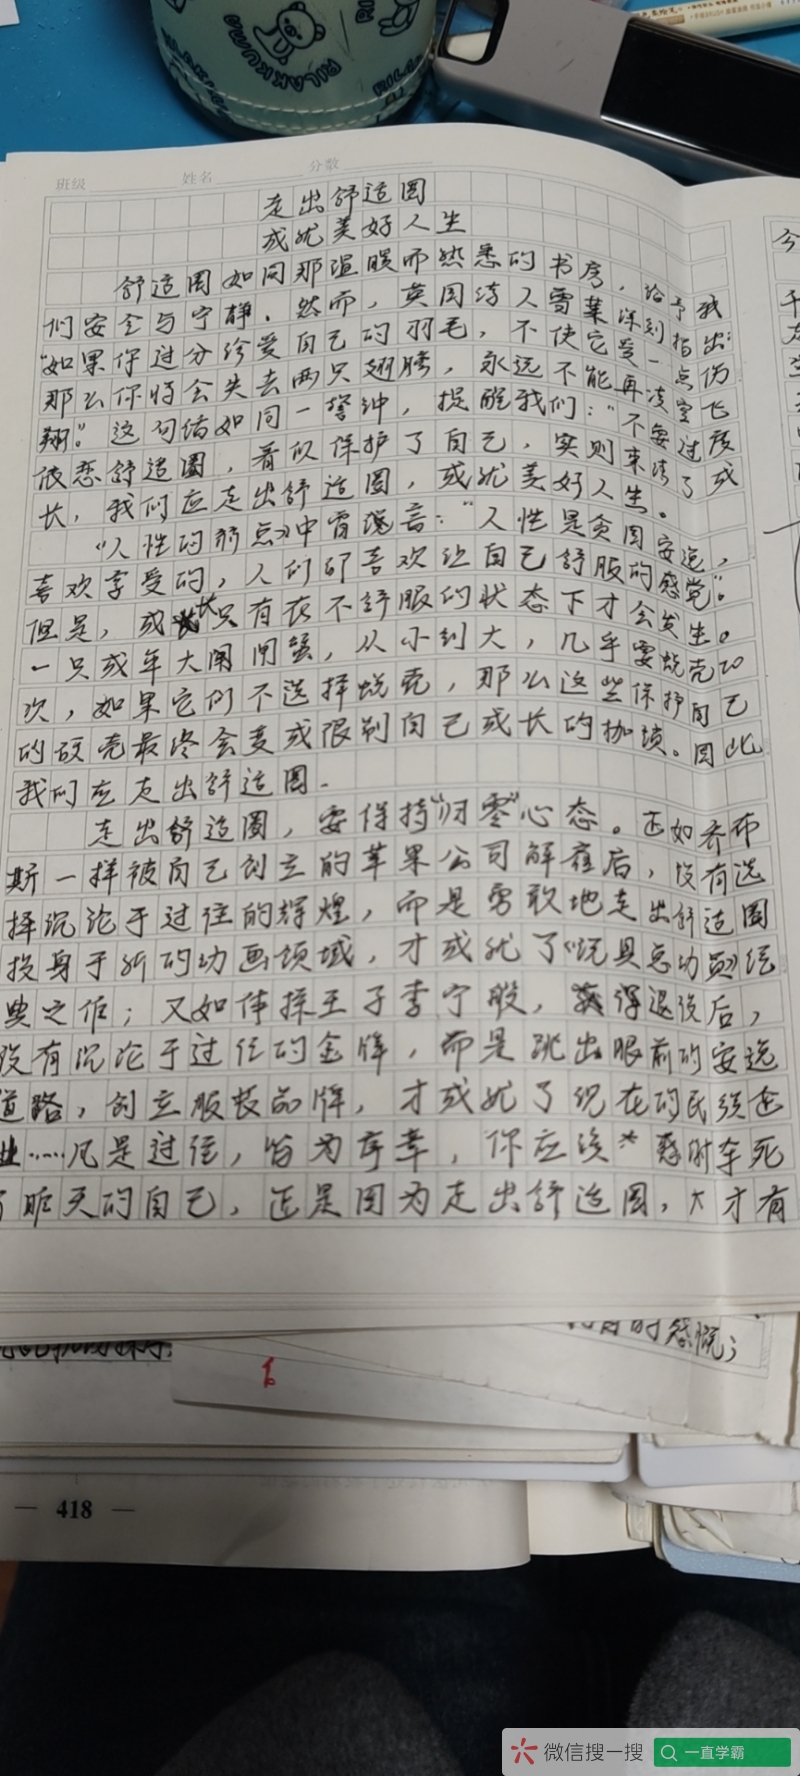 RILAKKUMA
班级 姓名 分数
走出舒适圈
成就美好人生
舒适圈如同那温暖而熟悉的书房，给予我
们安全与宁静。然而，英国诗人雪莱深刻指出：
“如果你过分珍爱自己的羽毛，不使它受一点伤
那么你将会失去两只翅膀，永远不能再凌空飞
翔。”这句话如同一警钟，提醒我们：“不要过度
依恋舒适圈，看似保护了自己，实则束缚了成
长，我们应走出舒适圈，成就美好人生。
《人性的弱点》中有箴言：“人性是贪图安逸，
喜欢享受的，人们都喜欢让自己舒服的感觉”。
但是，成长只有在不舒服的状态下才会发生。
一只成年大闸蟹，从小到大，几乎要蜕壳20
次，如果它们不选择蜕壳，那么这些保护自己
的硬壳最终会变成限制自己成长的枷锁。因此
我们应走出舒适圈。
走出舒适圈，要保持“归零”心态。正如乔布
斯一样被自己创立的苹果公司解雇后，没有选
择沉沦于过往的辉煌，而是勇敢地走出舒适圈
投身于新的动画领域，才成就了《玩具总动员》经
典之作；又如体操王子李宁般，退役后，
没有沉沦于过往的金牌，而是跳出眼前的安逸
道路，创立服装品牌，才成就了现在的民族企
业……凡是过往，皆为序章，你应该 随时杀死
了昨天的自己，正是因为走出舒适圈，才有
的感慨；
— 418 —
微信搜一搜 一直学霸